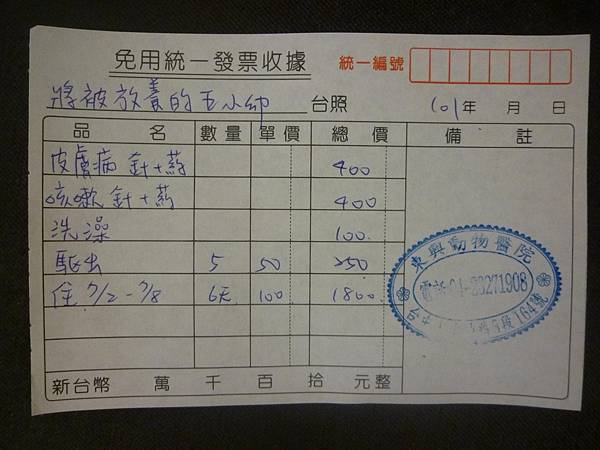 免用統一發票收據
統一編號
將被放養的五小幼 台照 101年 月 日
品名 數量 單價 總價 備註
皮膚病 針+葯 400
咳嗽 針+葯 400
洗澡 100
驅虫 5 50 250
住 7/2-7/8 6天 100 1800
新台幣 萬 千 百 拾 元整
東興動物醫院
電話:04-23271908
台中 164號